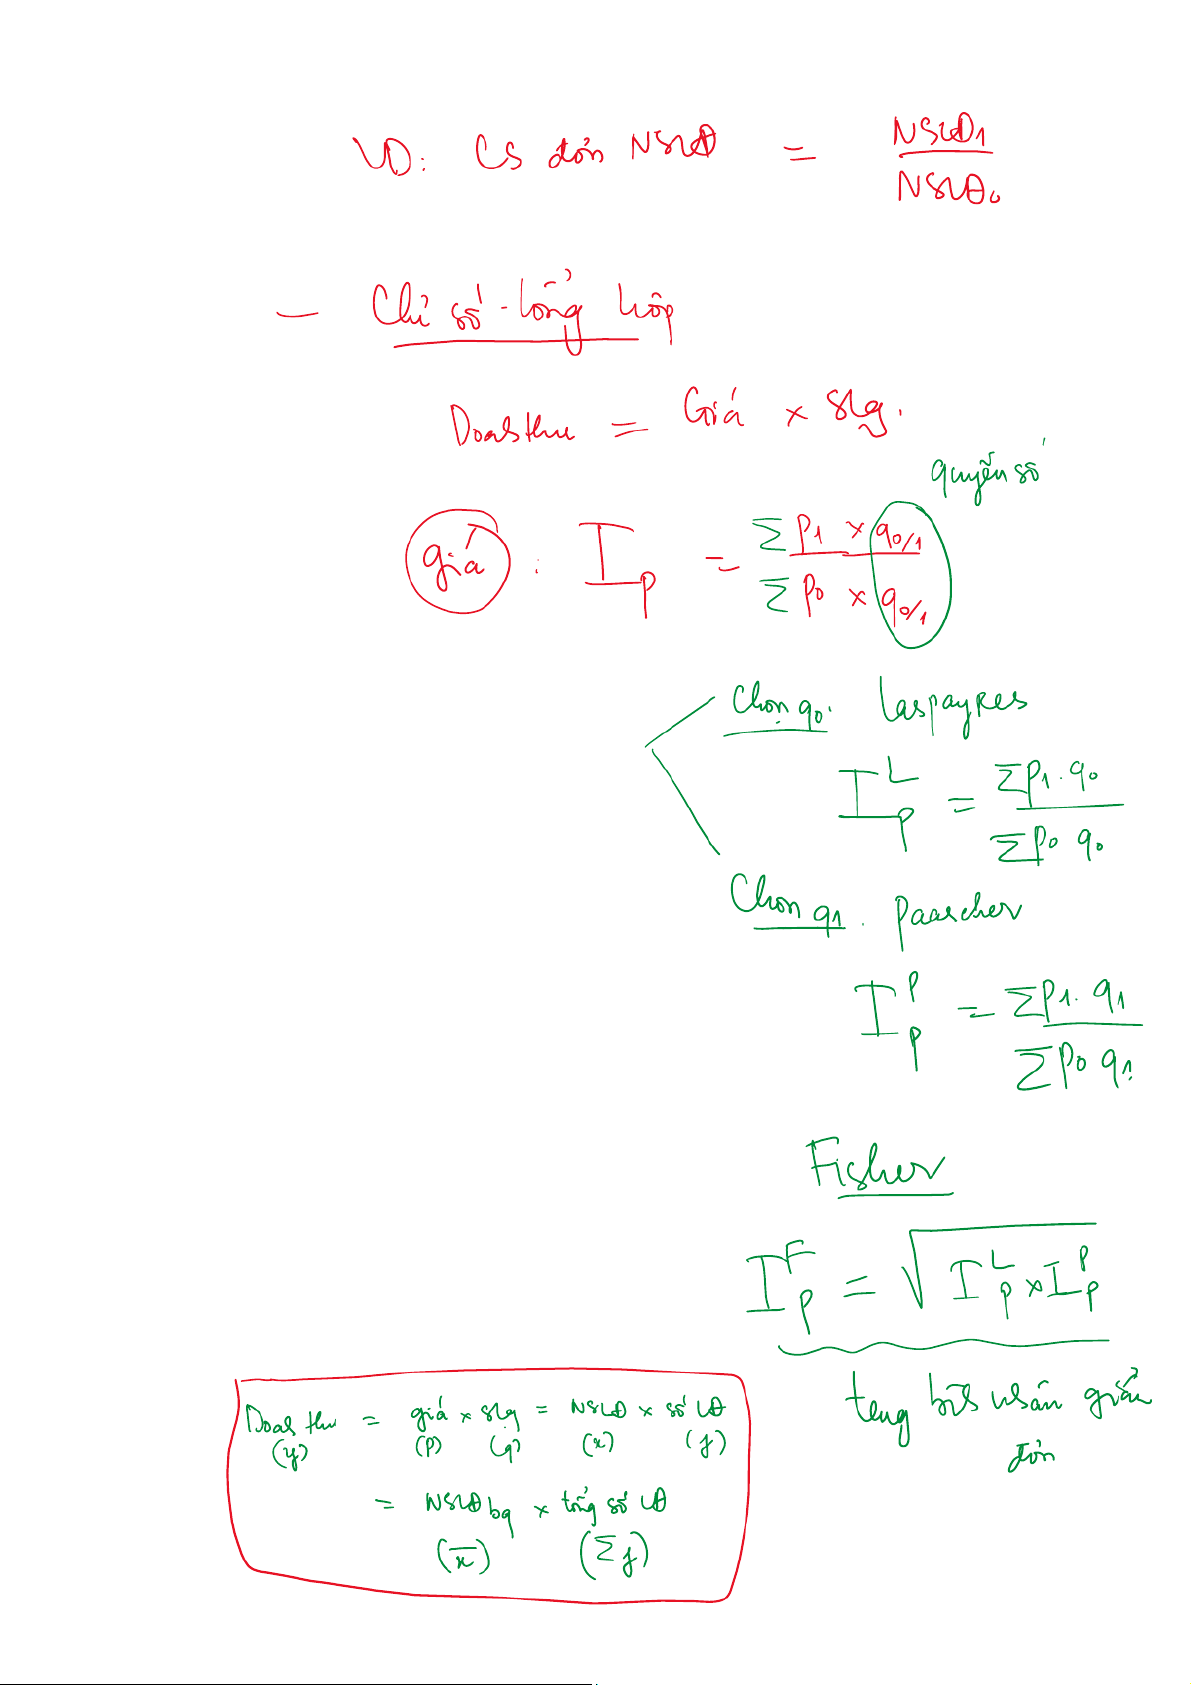 VD: CS đơn NSLĐ = NSLĐ1 / NSLĐ0
- Chỉ số tổng hợp
Doanh thu = Giá x slg.
quyền số
giá : Ip = Σ p1 x q0/1 / Σ p0 x q0/1
Chọn q0: Laspayres
I^L_p = Σp1.q0 / Σp0 q0
Chọn q1. Paascher
I^P_p = Σp1.q1 / Σp0 q1
Fisher
I^F_p = √(I^L_p x I^P_p)
trung bình nhân giản
đơn
Doanh thu = giá x slg = NSLĐ x số LĐ
(y) (p) (q) (x) (f)
= NSLĐ bq x tổng số LĐ
(x̄) (Σf)